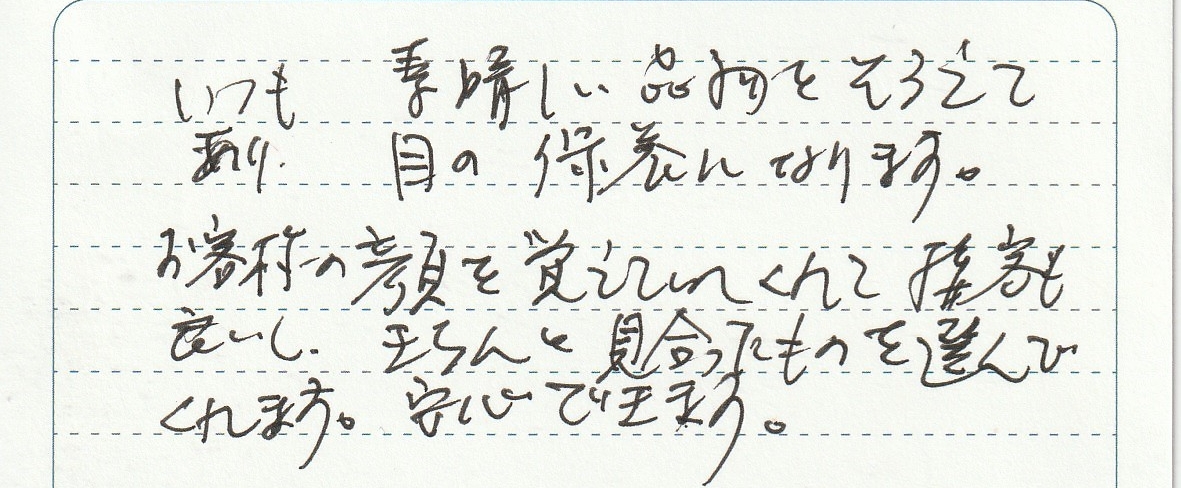 いつも 素晴しい品物をそろえて
あり、 目の保養になります。
お客様の顔を覚えていてくれて 接客も
良いし、きちんと見合ったものを選んで
くれます。安心できます。